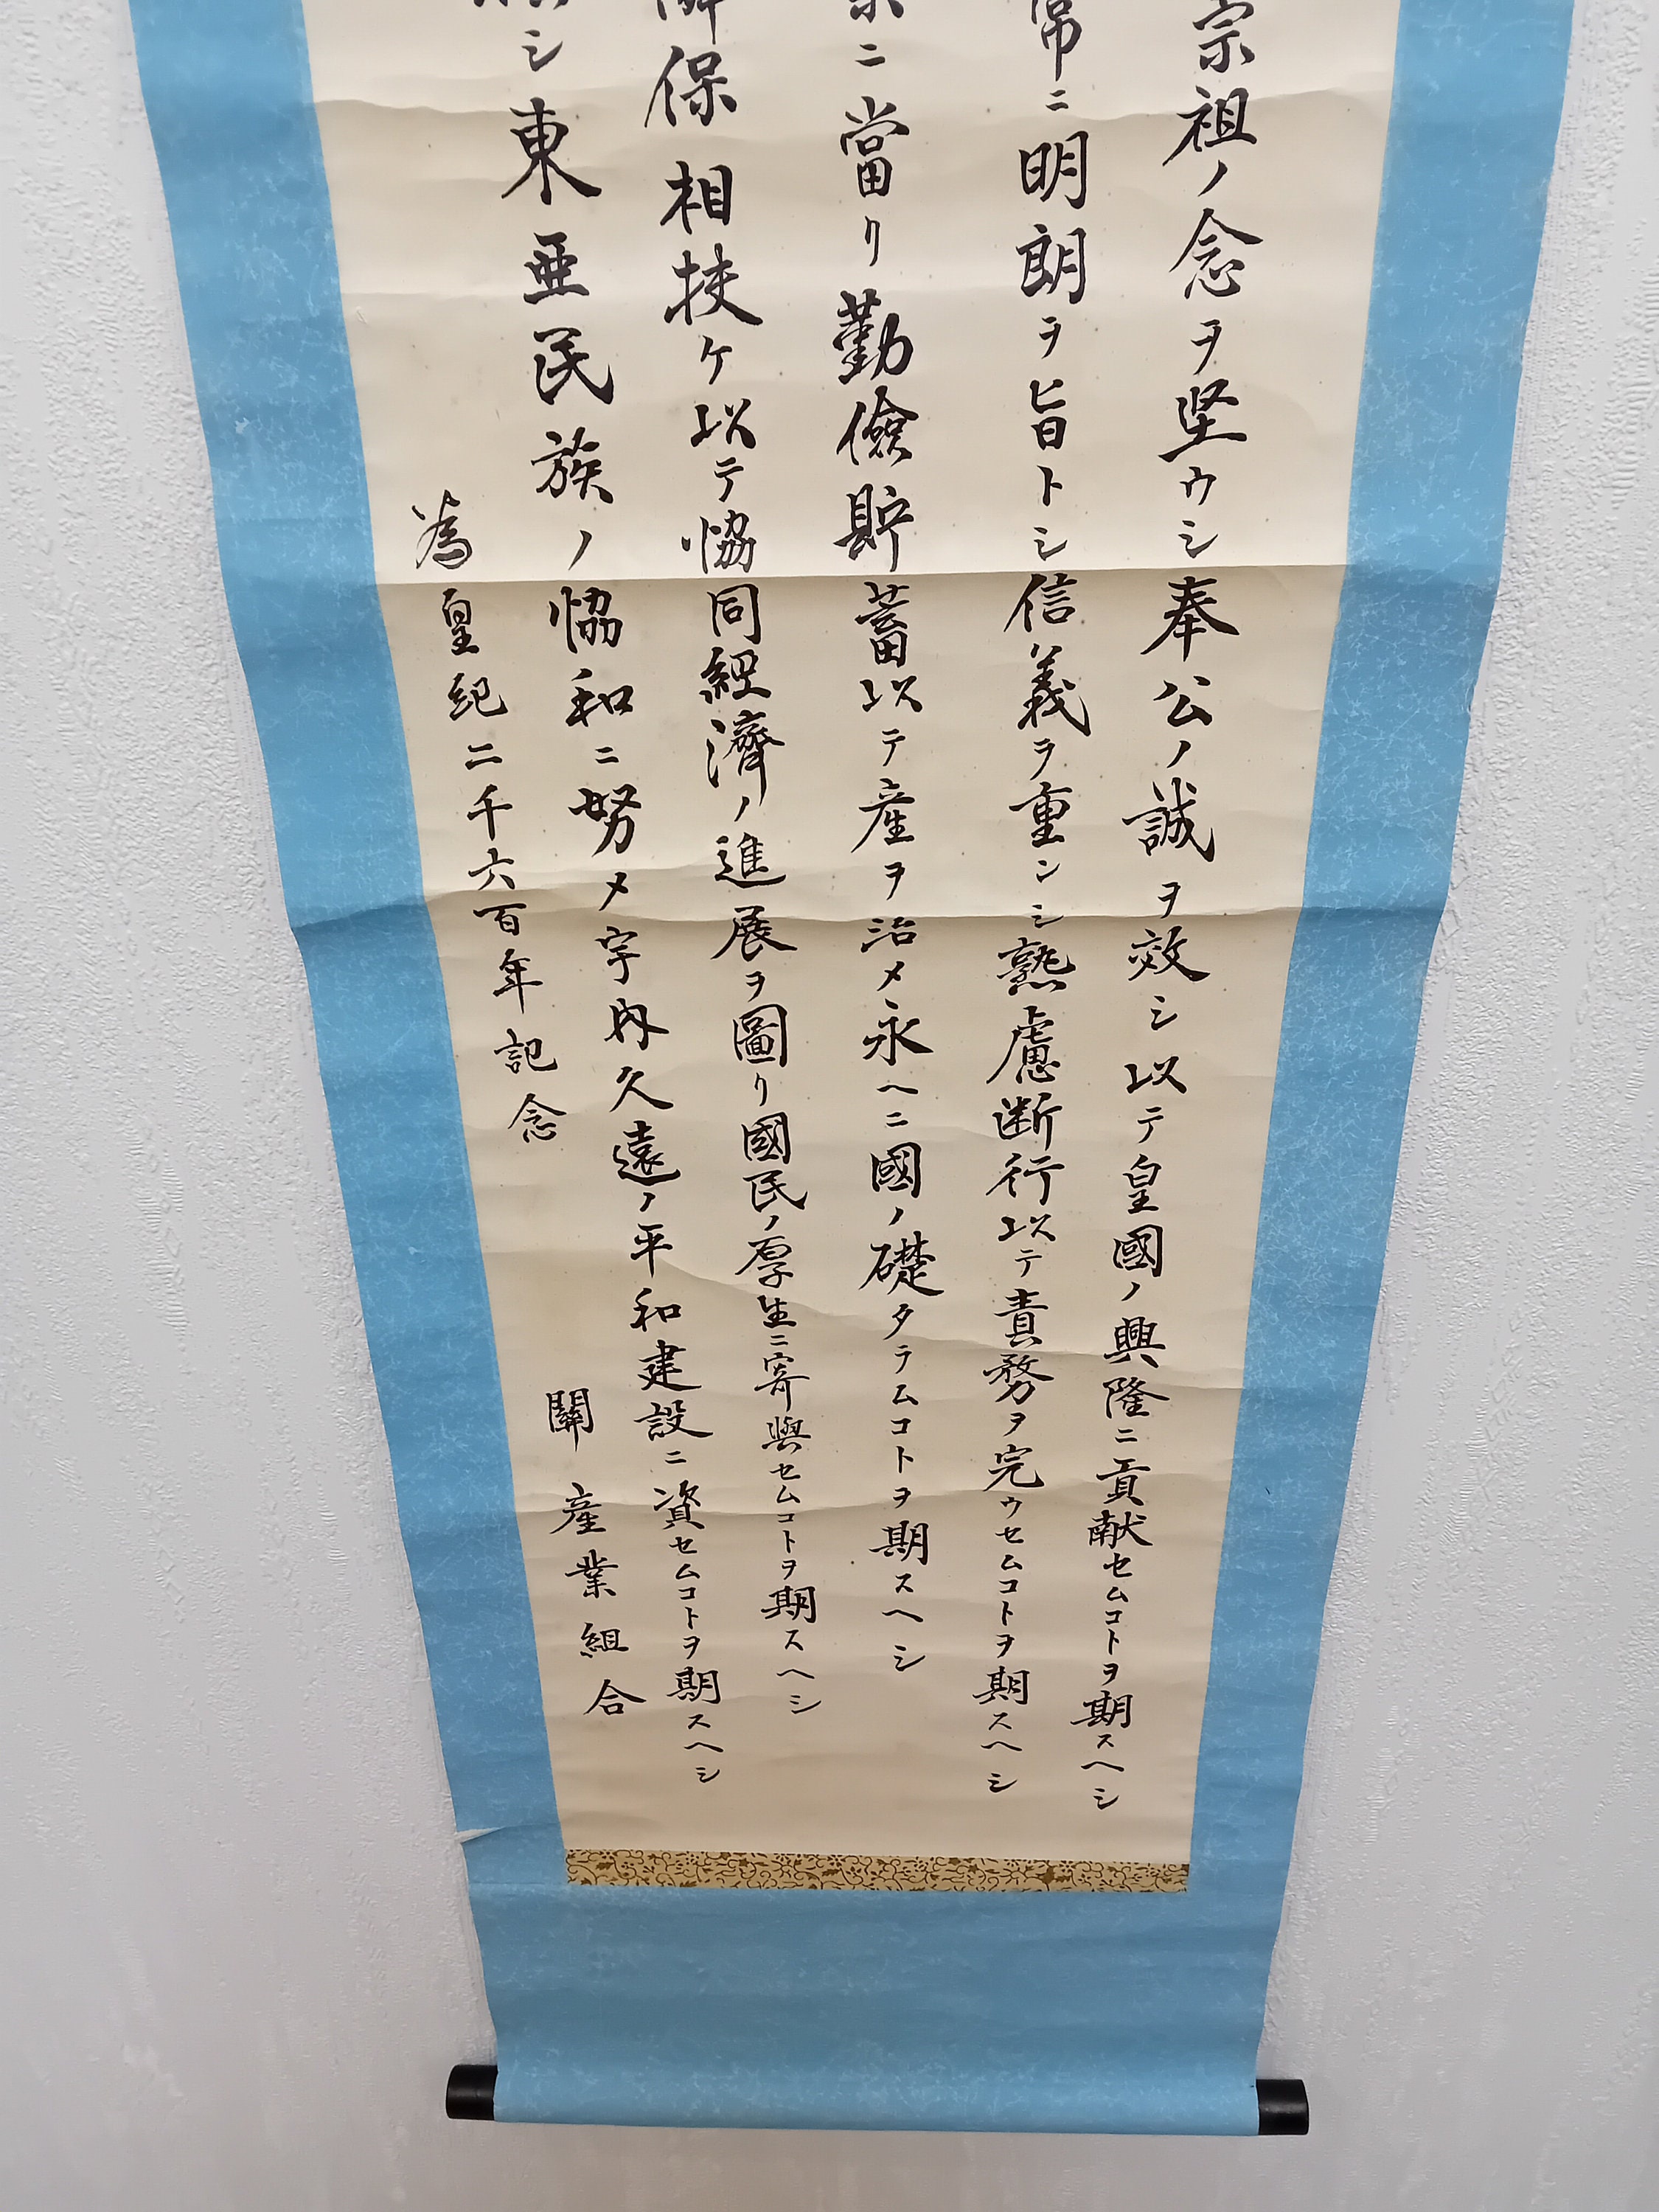 宗祖ノ念ヲ堅ウシ奉公ノ誠ヲ效シ以テ皇國ノ興隆ニ貢献セムコトヲ期スヘシ
常ニ明朗ヲ旨トシ信義ヲ重ンシ熟慮断行以テ責務ヲ完ウセムコトヲ期スヘシ
ニ當リ勤儉貯蓄以テ産ヲ治メ永ヘニ國ノ礎タラムコトヲ期スヘシ
保相扶ケ以テ恊同經濟ノ進展ヲ圖リ國民ノ厚生ニ寄與セムコトヲ期スヘシ
シ東亜民族ノ恊和ニ努メ宇内久遠ノ平和建設ニ資セムコトヲ期スヘシ
為皇紀二千六百年記念
關産業組合